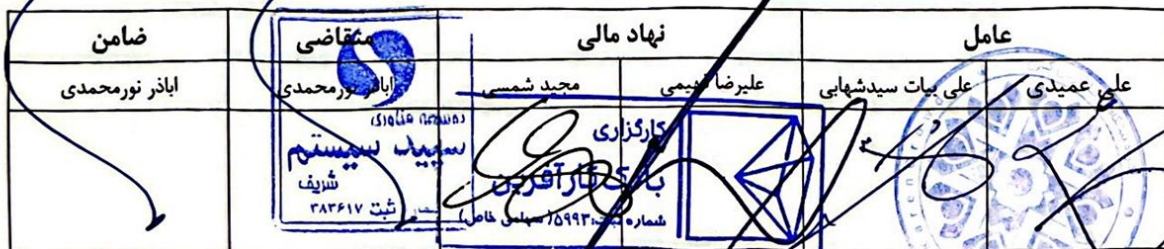 عامل نهاد مالی متقاضی ضامن
علی عمیدی علی بیات سیدشهابی علیرضا فهیمی مجید شمسی اباذر نورمحمدی اباذر نورمحمدی
کارگزاری
بانک کارآفرین
شماره ثبت: ۵۹۹۳ (سهامی خاص)
سیستم
شریف
ثبت ۳۸۳۶۱۷